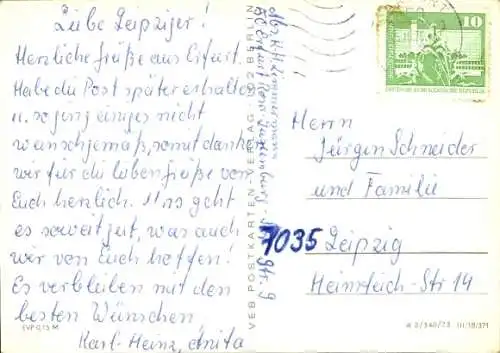 Liebe Leipziger!
Herzliche Grüße aus Erfurt.
Habe die Post später erhalten
u. so ging einiges nicht
wunschgemäß, somit danken
wir für die lieben Grüße von
Euch herzlich. Uns geht
es soweit gut, was auch
wir von Euch hoffen!
Es verbleiben mit den
besten Wünschen
Karl-Heinz, Anita
EVP 0,15 M
VEB POSTKARTEN-VERLAG · 102 BERLIN
10
Herrn
Jürgen Schneider
und Familie
7035 Leipzig
Heinrich-Str 14
III/18/371